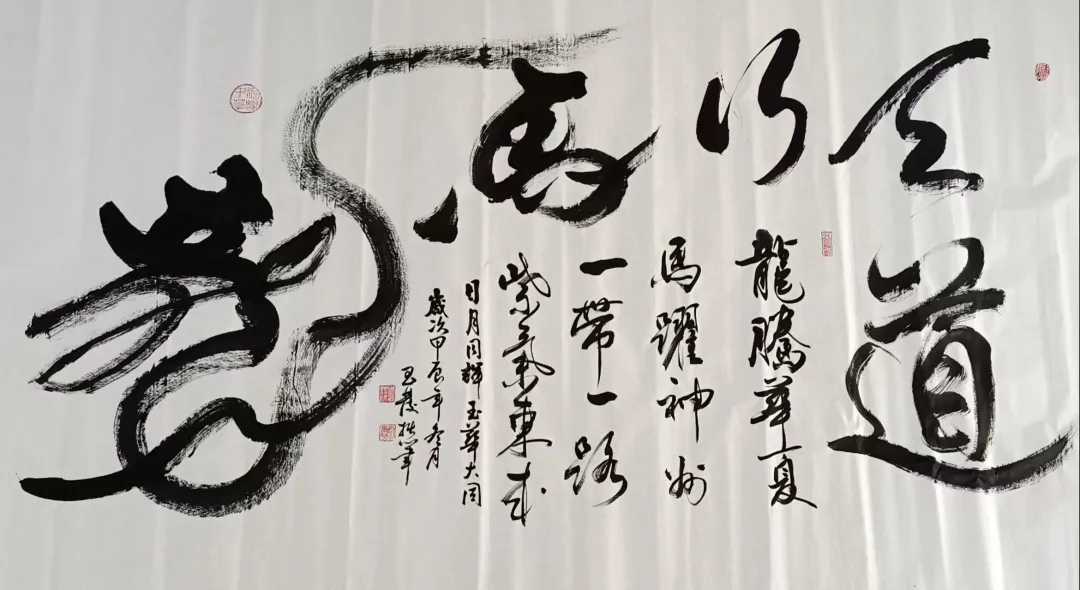 天道
行
馬
龍
龍騰華夏
馬躍神州
一帶一路
紫氣東來
日月同輝 玉華大同
歲次甲辰年冬月